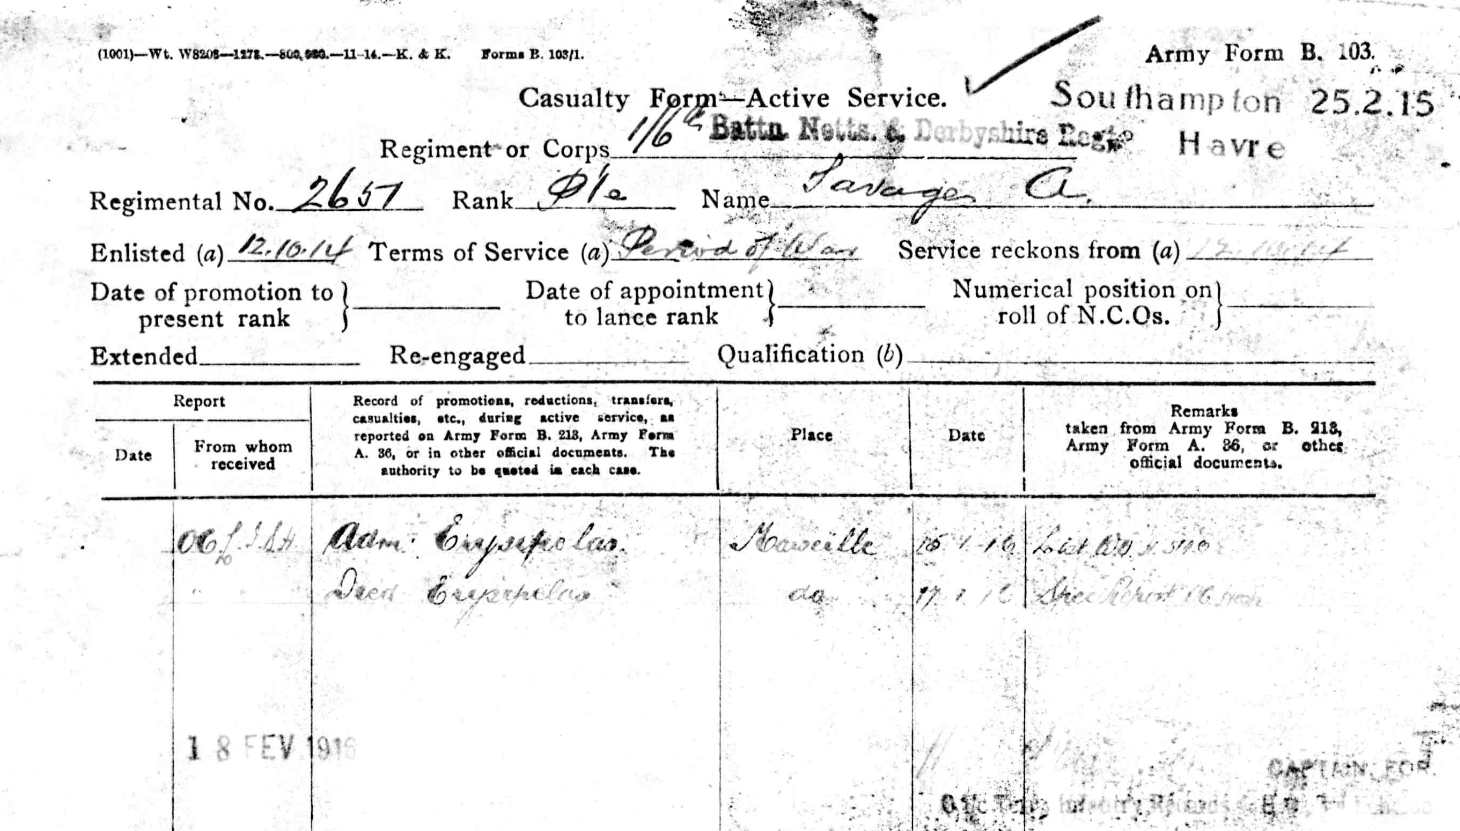 (1001)—Wt. W8208—1278.—800,000.—11-14.—K. & K. Forms B. 103/1.
Army Form B. 103.
Casualty Form—Active Service.
Southampton 25.2.15
Havre
Regiment or Corps 1/6th Battn Notts. & Derbyshire Regt.
Regimental No. 2657 Rank Pte Name Savage A.
Enlisted (a) 12.10.14 Terms of Service (a) Period of War Service reckons from (a) 12.10.14
Date of promotion to present rank
Date of appointment to lance rank
Numerical position on roll of N.C.Os.
Extended Re-engaged Qualification (b)
Report
Date
From whom received
Record of promotions, reductions, transfers,
casualties, etc., during active service, as
reported on Army Form B. 213, Army Form
A. 36, or in other official documents. The
authority to be quoted in each case.
Place
Date
Remarks
taken from Army Form B. 213,
Army Form A. 36, or other
official documents.
Adm. Erysipelas. Marseille 1.16
Died Erysipelas do 17.1.16
18 FEV 1916
CAPTAIN, FOR
Infantry Records